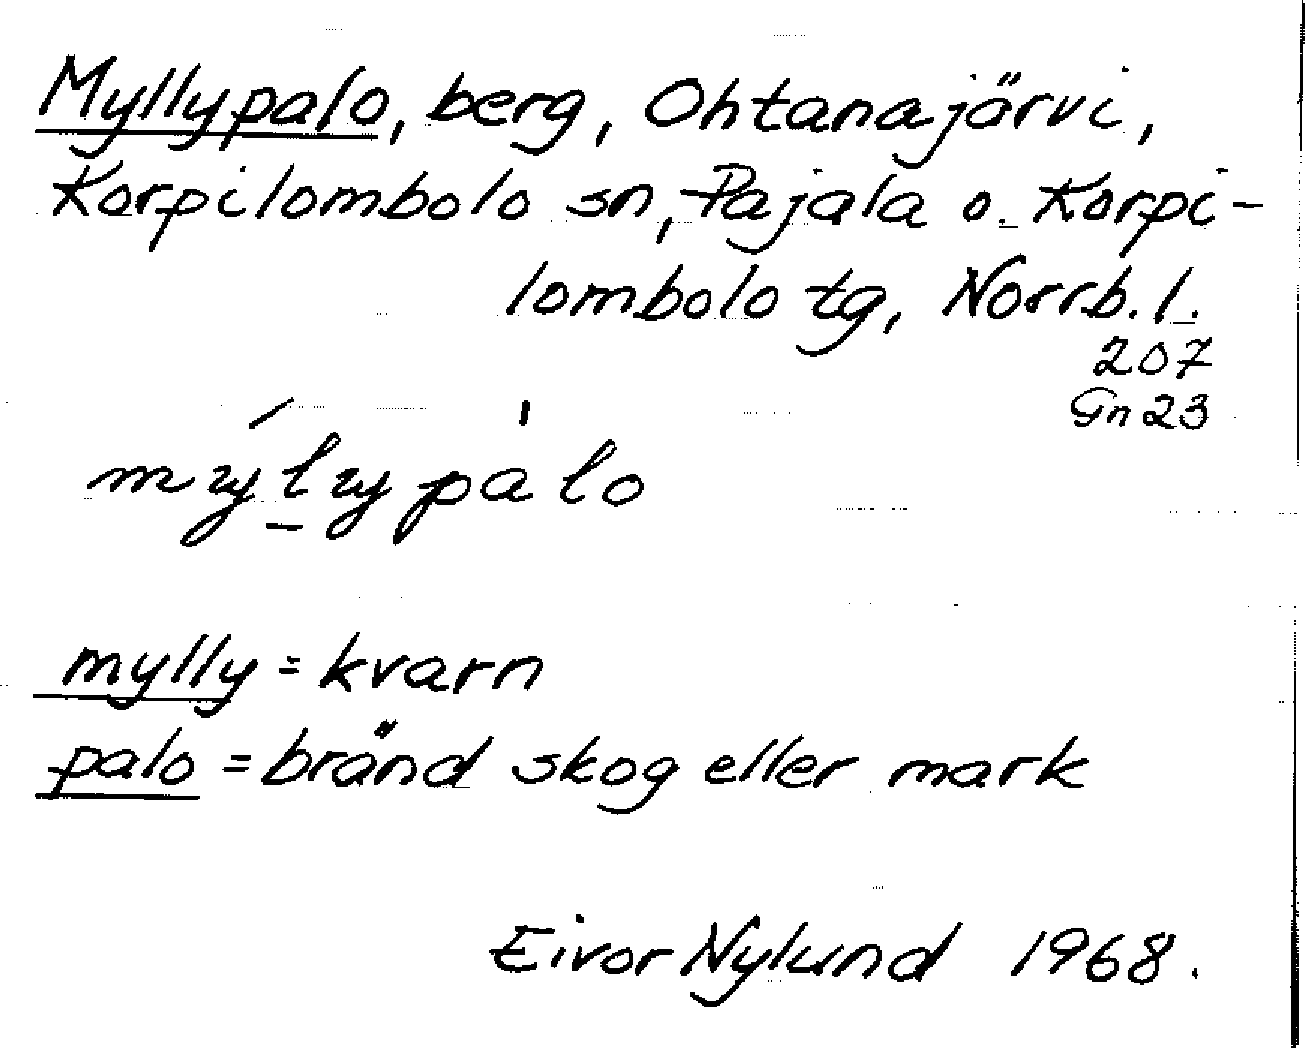 Myllypalo, berg, Ohtanajärvi,
Korpilombolo sn, Pajala o. Korpi-
lombolo tg, Norrb. l.
207
Gn 23
mylypalo
mylly = kvarn
palo = bränd skog eller mark
Eivor Nylund 1968.